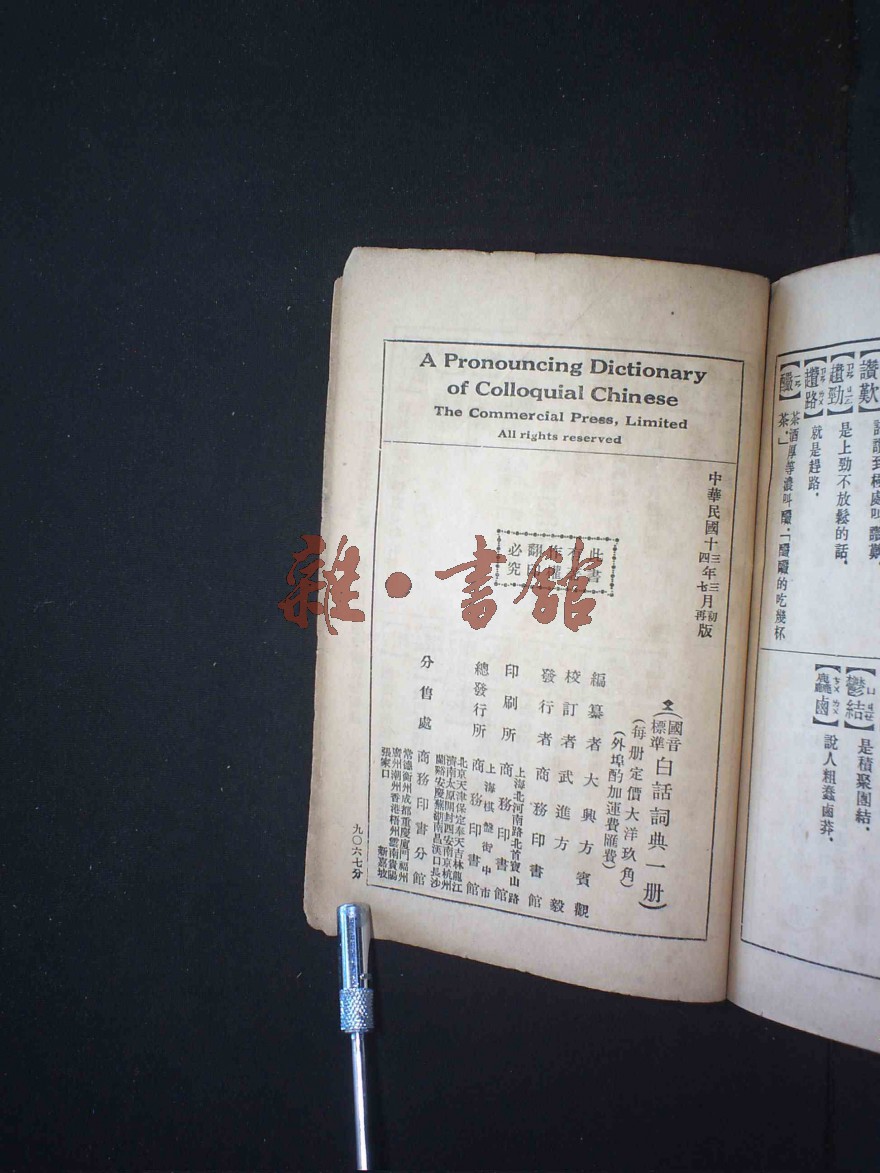 A Pronouncing Dictionary
of Colloquial Chinese
The Commercial Press, Limited
All rights reserved
中華民國十三年三月初版
十四年七月再版
此書
翻印
必究
(國音標準白話詞典一册)
(每册定價大洋玖角)
(外埠酌加運費匯費)
編纂者 大興方賓觀
校訂者 武進方毅
發行者 商務印書館
印刷所 上海北河南路北首寶山路 商務印書館
總發行所 上海棋盤街中市 商務印書館
分售處 商務印書分館
北京天津保定奉天吉林龍江
濟南太原開封西安南京杭州
蘭谿安慶蕪湖南昌漢口長沙
常德衡州成都重慶廈門福州
廣州潮州香港梧州雲南貴陽
張家口 新嘉坡
九〇六七分
雜·書館
讚歎
【趲勁】是上勁不放鬆的話.
【趲路】就是趕路.
【釅】茶酒厚等濃叫釅.「釅釅的吃幾杯
茶.」
【鬱結】是積聚團結.
說人粗蠢鹵莽.